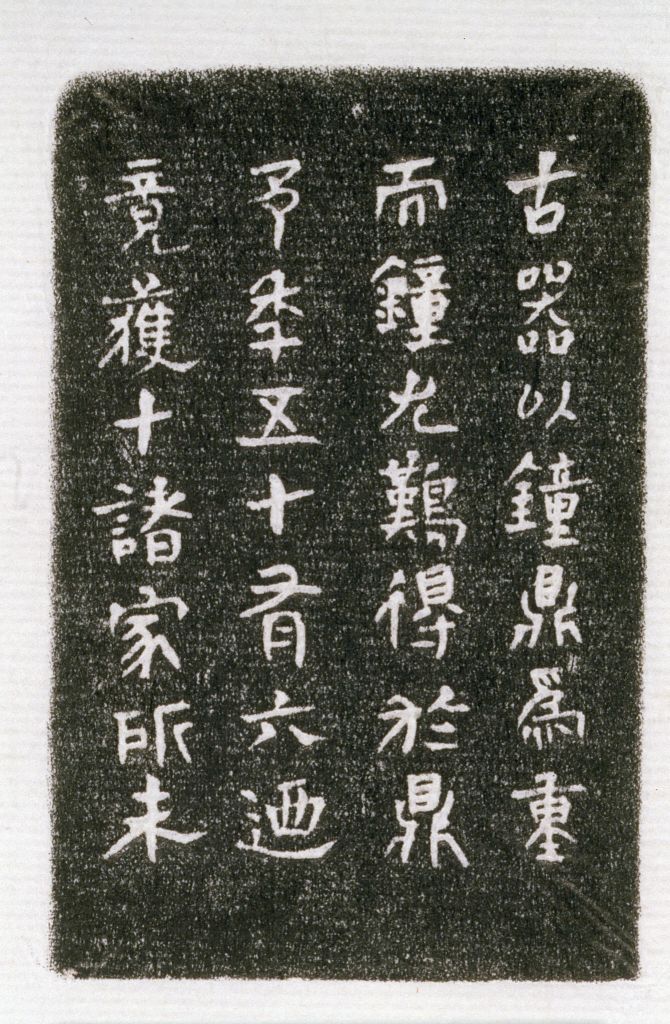 古器以鐘鼎爲重
而鐘尤難得於鼎
予年五十有六迺
竟獲十諸家所未